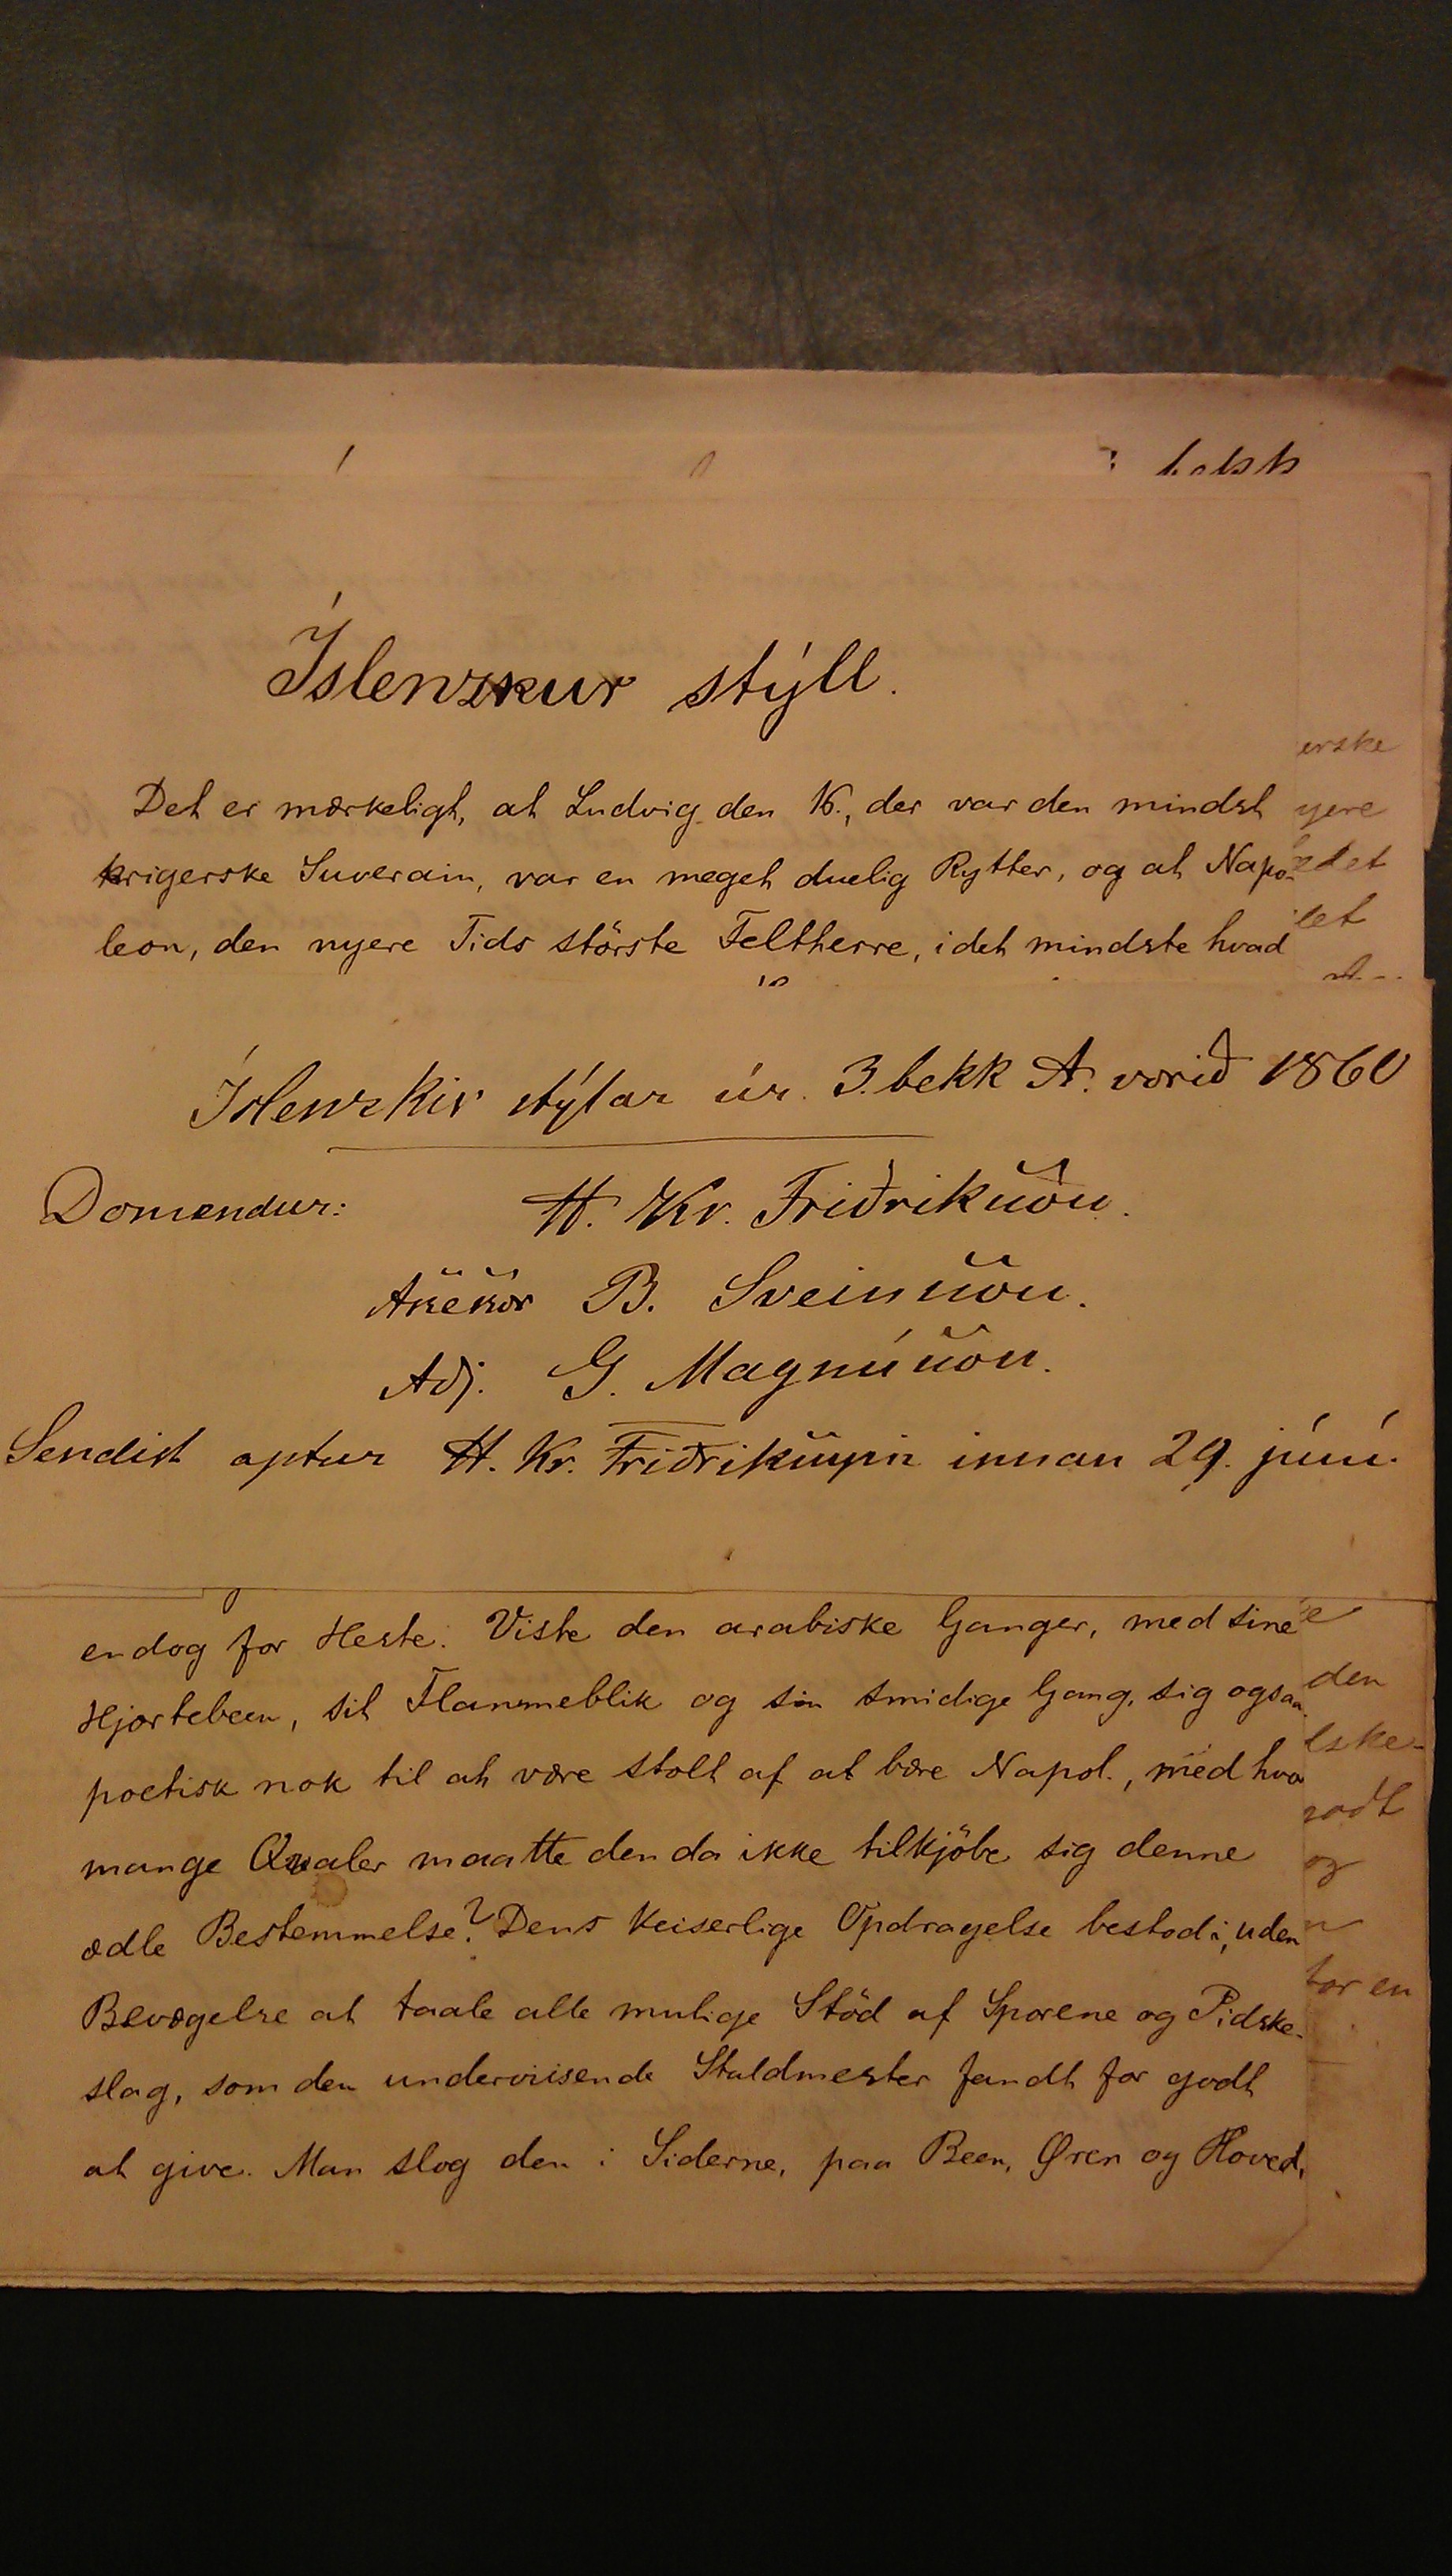 Íslenzkur stýll.
Det er mærkeligt, at Ludvig den 16., der var den mindst
krigerske Suverain, var en meget duelig Rytter, og at Napo-
leon, den nyere Tids störste Feltherre, i det mindste hvad
Íslenzkir stýlar úr 3. bekk A. vorið 1860
Domendur: H. Kr. Friðriksson.
Assessor B. Sveinsson.
Adj. G. Magnússon.
Sendist aptur H. Kr. Friðrikssyni innan 29. júní.
endog for Heste. Viste den arabiske Ganger, med sine
Hjortebeen, sit Flammeblik og sin smidige Gang, sig ogsaa
poetisk nok til at være stolt af at bære Napol., med hvor
mange Qvaler maatte den da ikke tilkjöbe sig denne
ædle Bestemmelse? Dens Keiserlige Opdragelse bestod i, uden
Bevægelse at taale alle mulige Stöd af Sporene og Pidske-
slag, som den underviisende Staldmester fandt for godt
at give. Man slog den i Siderne, paa Been, Øren og Hoved,
erske
yere
let
den
lske-
og
for en